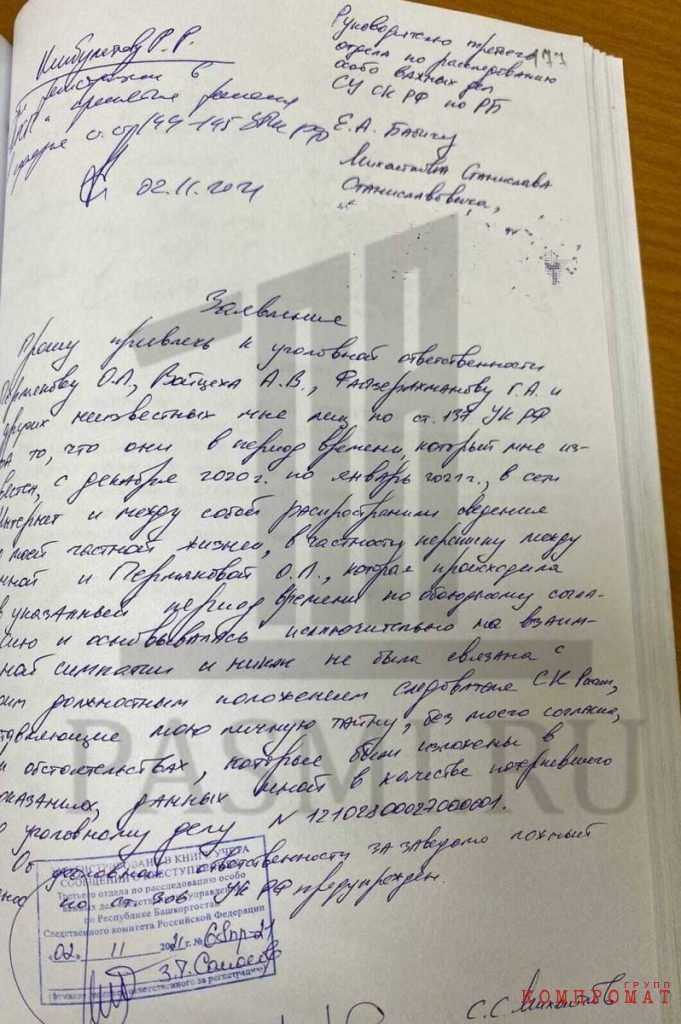 Р. Р.
регистрации в
принятие решения
в порядке ст. ст. 144-145 УПК РФ
02.11.2021
Руководителю третьего
отдела по расследованию
особо важных дел
СУ СК РФ по РБ
177
Е.А. Бабичу
Станислава
Станиславовича,
Заявление
Прошу привлечь к уголовной ответственности
Пермякову О.Л., Войцеха А.В., Г.А. и
других неизвестных мне лиц по ст. 137 УК РФ
за то, что они в период времени, который мне из-
вестен, с декабря 2020г. по январь 2021г., в сети
Интернет и между собой распространили сведения
о моей частной жизни, в частности переписку между
мной и Пермяковой О.Л., которая происходила
в указанный период времени по обоюдному согла-
сию и основывалась исключительно на взаим-
ной симпатии и никак не была связана с
моим должностным положением следователя СК России,
составляющие мою личную тайну, без моего согласия,
при обстоятельствах, которые были изложены в
показаниях, данных мной в качестве потерпевшего
по уголовному делу N 12102800027000001.
Об уголовной ответственности за заведомо ложный
донос по ст. 306 УК РФ предупрежден.
ЗАРЕГИСТРИРОВАНО В КНИГЕ УЧЕТА
СООБЩЕНИЙ О ПРЕСТУПЛЕНИЯХ
Третьего отдела по расследованию особо
важных дел следственного управления
по Республике Башкортостан
Следственного комитета Российской Федерации
«02» 11 2021 г. № 68пр-21
ответственного за регистрацию)
С.С.
PASMI.RU
ГРУПП
КОМПРОМАТ